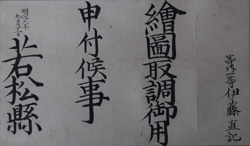 等外一等伊藤直記
繪圖取調御用
申付候事
明治六年
若松縣